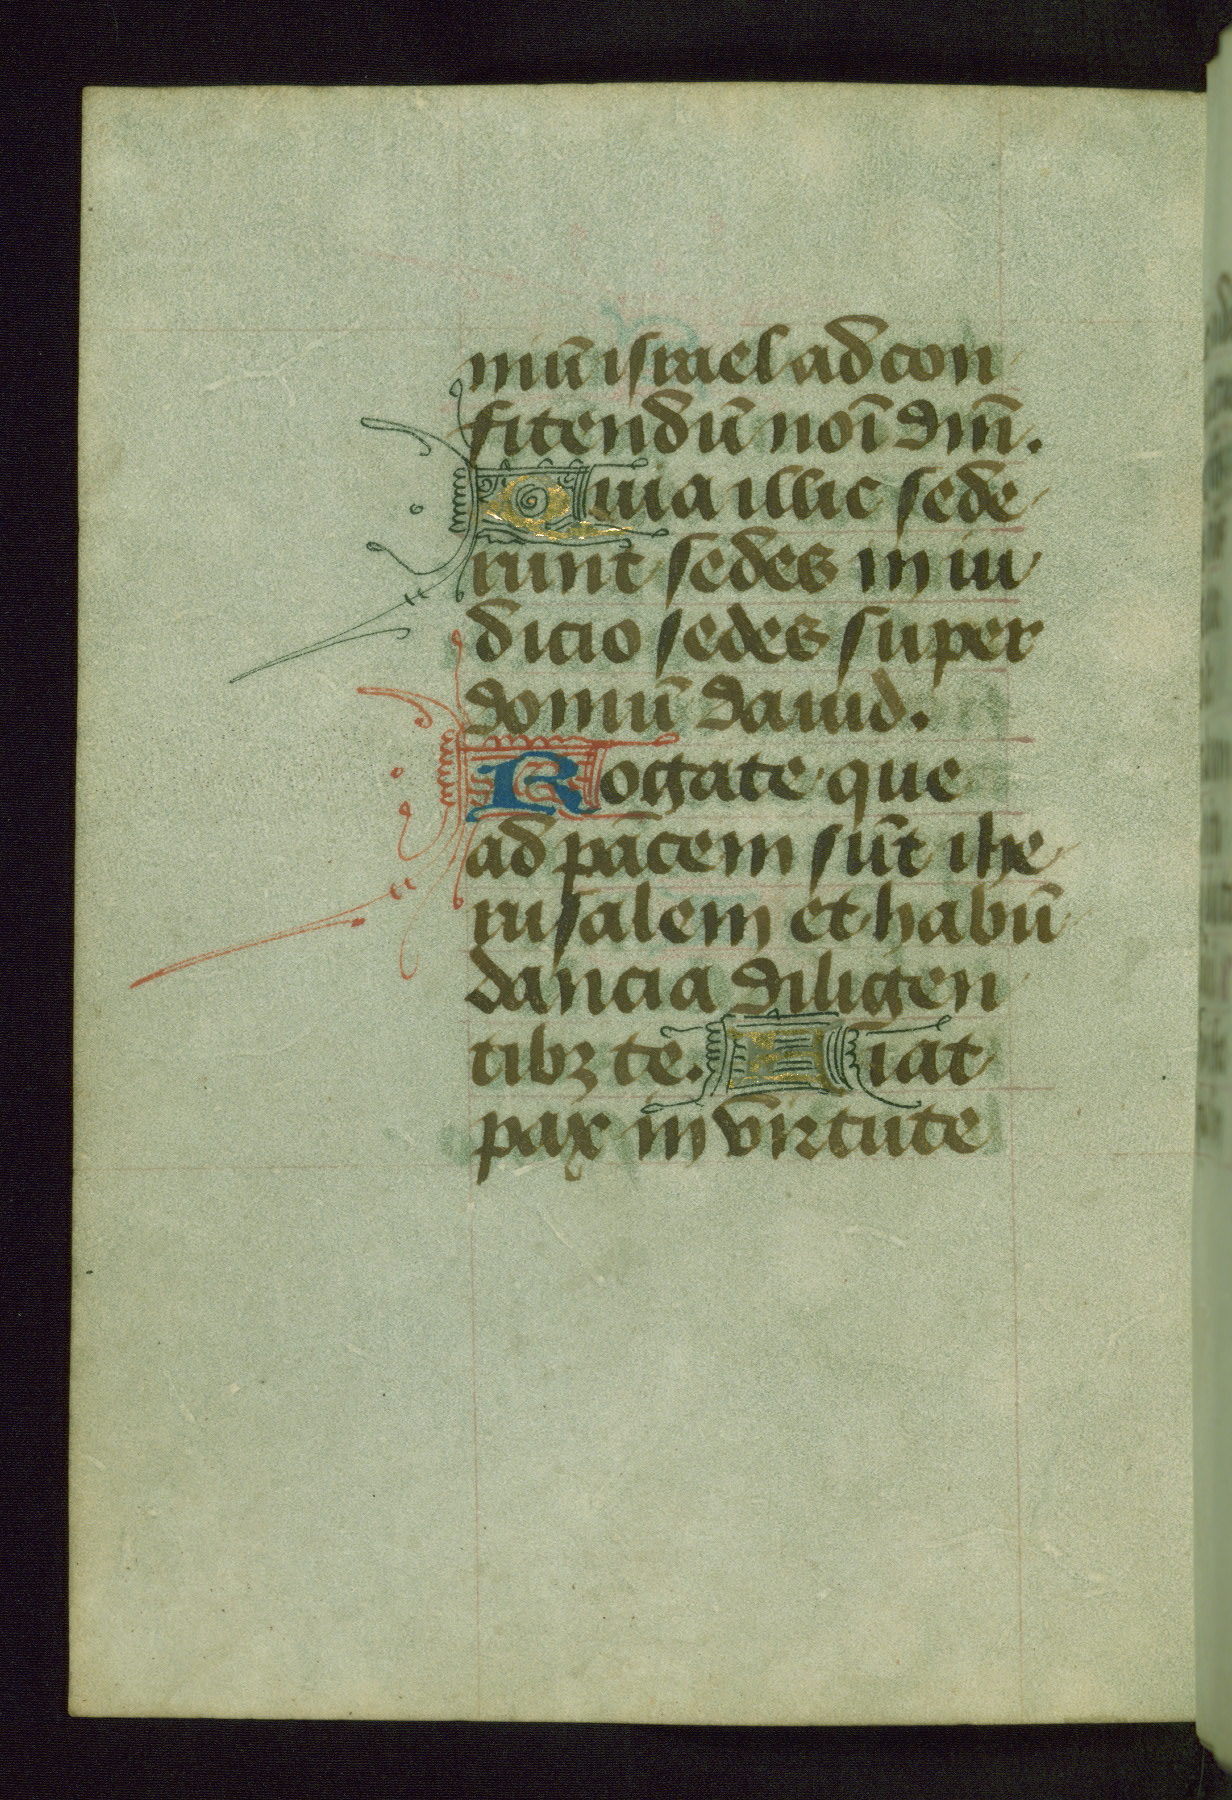 niū israel ad con
fitendū noī dnī.
Quia illic sede
runt sedes in iu
dicio sedes super
domū dauid.
Rogate que
ad pacem sūt ihe
rusalem et habū
dancia diligen
tibꝫ te. Fiat
pax in virtute